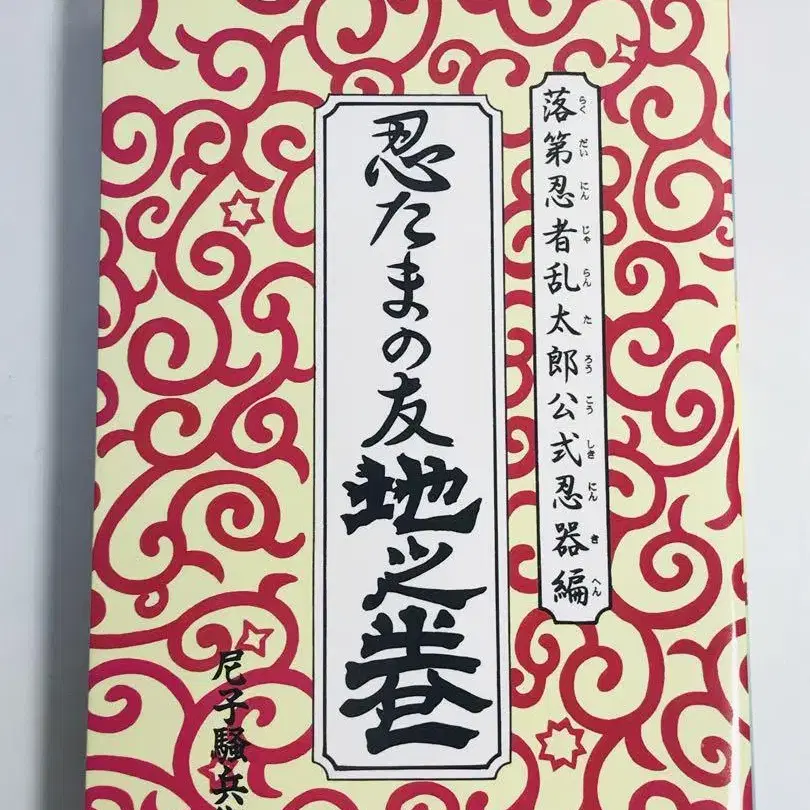 落第忍者乱太郎公式忍器編
らくだいにんじゃらんたろうこうしきにんきへん
忍たまの友地之巻
尼子騒兵